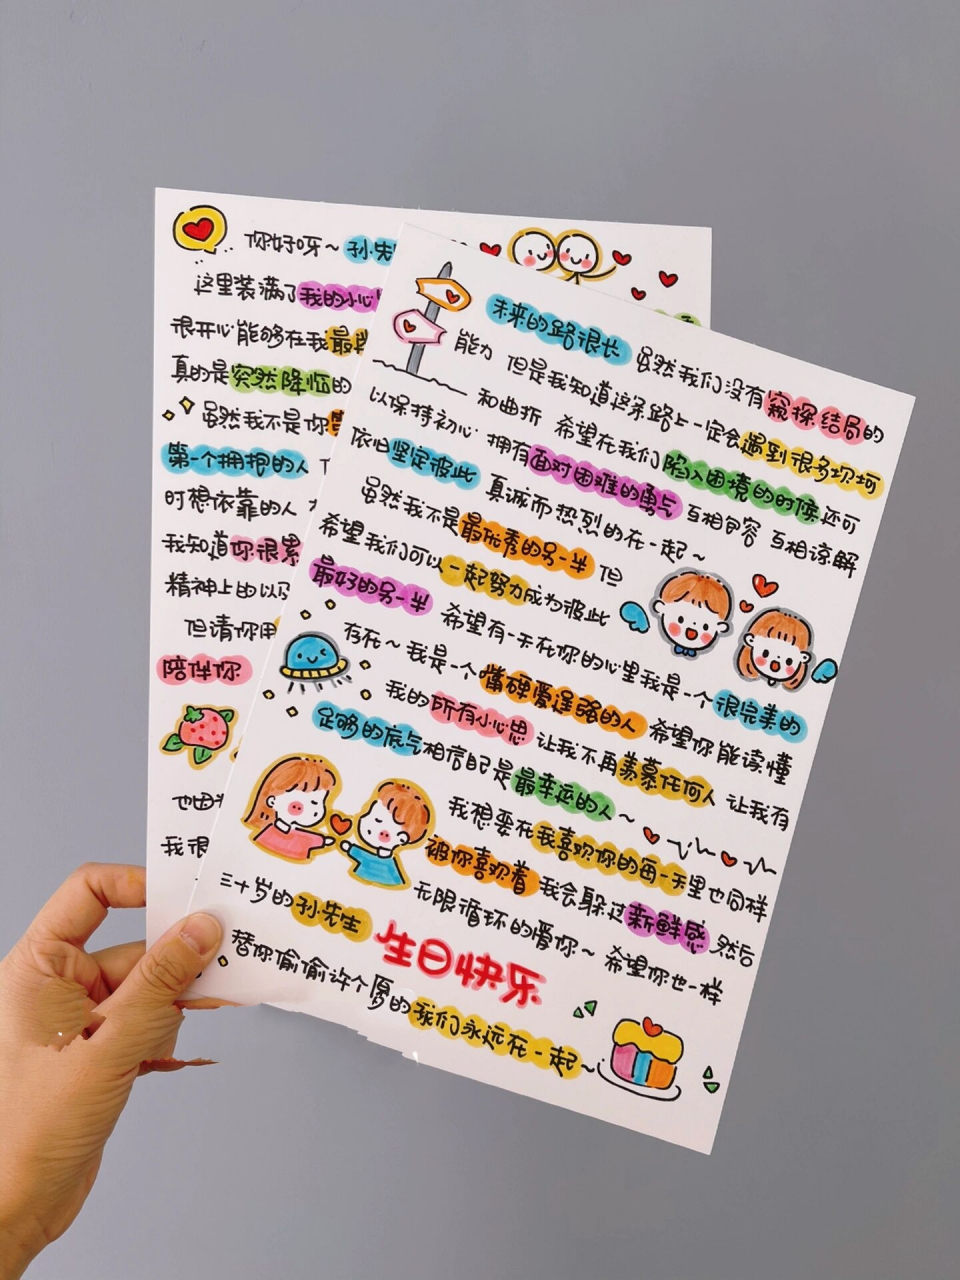 你好呀~孙先
这里装满了我的小心
很开心能够在我最
真的是突然降临的
虽然我不是你
第一个拥抱的人
时想依靠的人
我知道你很累
精神上的以及
但请你用
陪伴你
也因
我很
未来的路很长 虽然我们没有窥探结局的
能力 但是我知道这条路上一定会遇到很多坎坷
和曲折 希望在我们陷入困境的时候还可
以保持初心 拥有面对困难的勇气 互相包容 互相谅解
依旧坚定彼此 真诚而热烈的在一起~
虽然我不是最优秀的另一半 但
希望我们可以一起努力成为彼此
最好的另一半 希望有一天在你的心里我是一个很完美的
存在~我是一个嘴硬爱逞强的人 希望你能读懂
我的所有小心思 让我不再羡慕任何人 让我有
足够的底气相信自己是最幸运的人~
我想要在我喜欢你的每一天里也同样
被你喜欢着 我会躲过新鲜感 然后
无限循环的爱你~ 希望你也一样
三十岁的孙先生 生日快乐
替你偷偷许个愿的我们永远在一起~